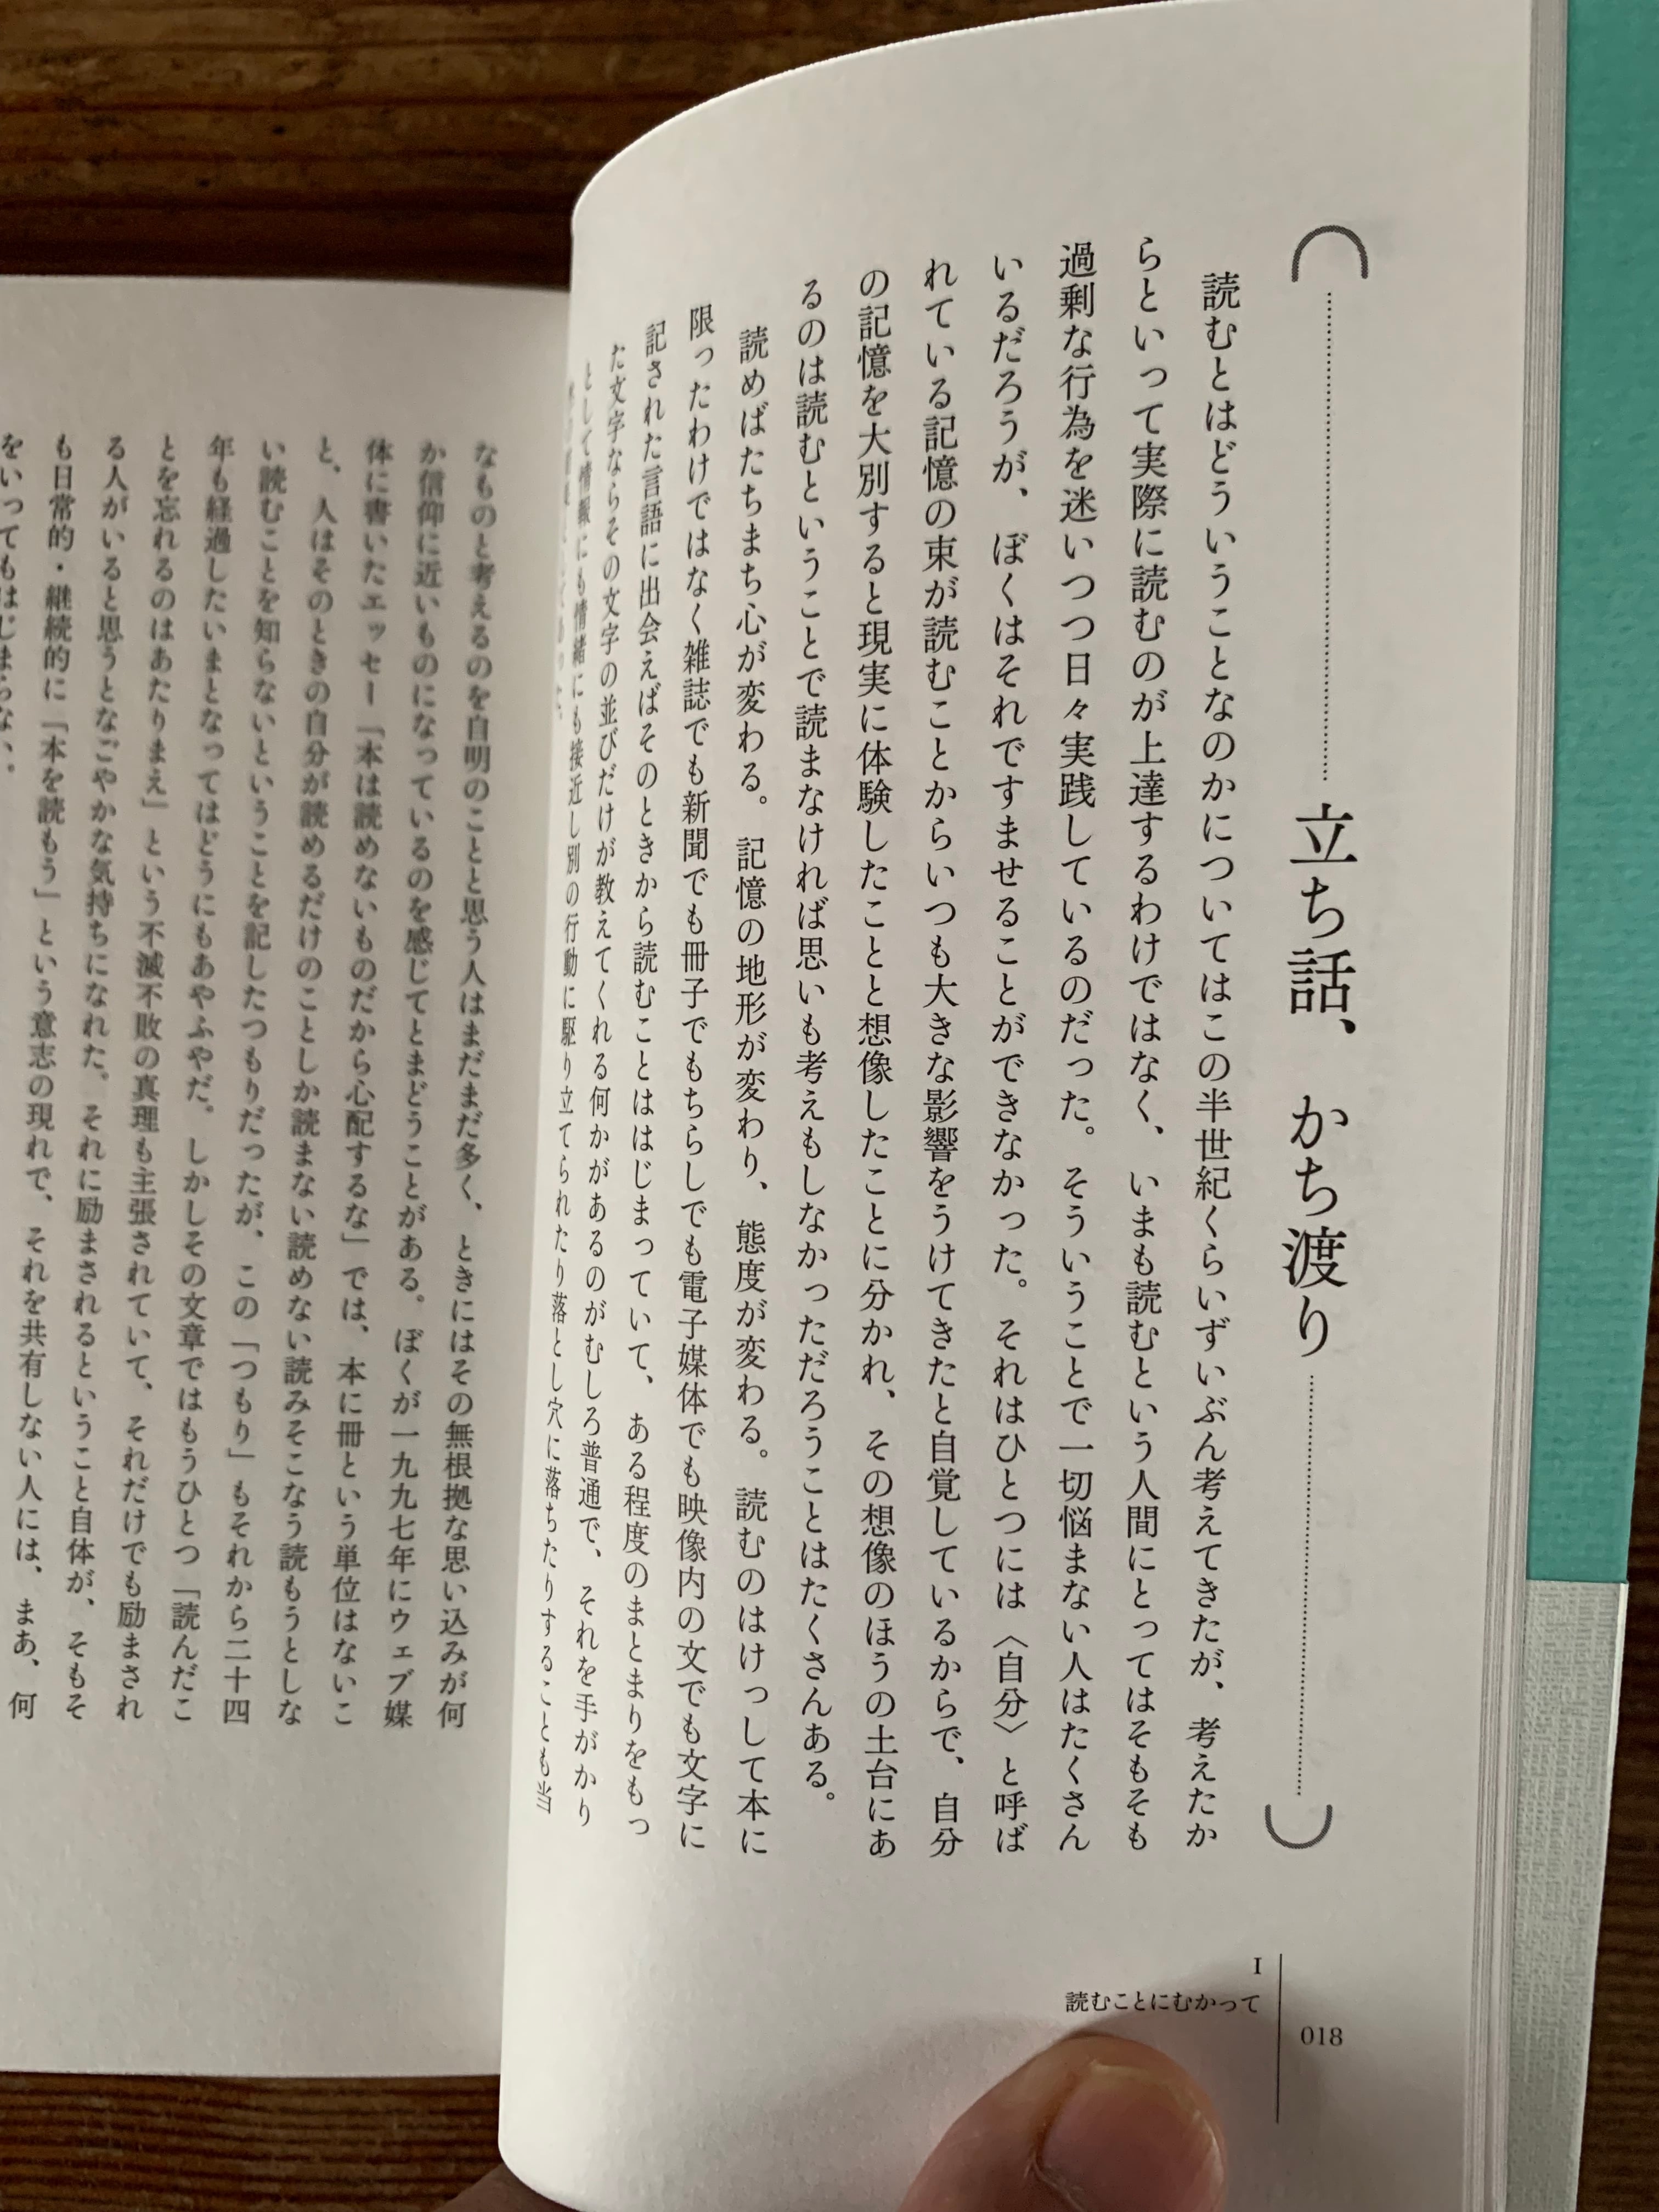 立ち話、かち渡り
読むとはどういうことなのかについてはこの半世紀くらいずいぶん考えてきたが、考えたか
らといって実際に読むのが上達するわけではなく、いまも読むという人間にとってはそもそも
過剰な行為を迷いつつ日々実践しているのだった。そういうことで一切悩まない人はたくさん
いるだろうが、ぼくはそれですませることができなかった。それはひとつには〈自分〉と呼ば
れている記憶の束が読むことからいつも大きな影響をうけてきたと自覚しているからで、自分
の記憶を大別すると現実に体験したことと想像したことに分かれ、その想像のほうの土台にあ
るのは読むということで読まなければ思いも考えもしなかっただろうことはたくさんある。
読めばたちまち心が変わる。記憶の地形が変わり、態度が変わる。読むのはけっして本に
限ったわけではなく雑誌でも新聞でも冊子でもちらしでも電子媒体でも映像内の文でも文字に
記された言語に出会えばそのときから読むことははじまっていて、ある程度のまとまりをもっ
た文字ならその文字の並びだけが教えてくれる何かがあるのがむしろ普通で、それを手がかり
として情報にも情緒にも接近し別の行動に駆り立てられたり落とし穴に落ちたりすることも当
I
読むことにむかって
018
なものと考えるのを自明のことと思う人はまだまだ多く、ときにはその無根拠な思い込みが何
か信仰に近いものになっているのを感じてとまどうことがある。ぼくが一九九七年にウェブ媒
体に書いたエッセー「本は読めないものだから心配するな」では、本に冊という単位はないこ
と、人はそのときの自分が読めるだけのことしか読まない読めない読みそこなう読もうとしな
い読むことを知らないということを記したつもりだったが、この「つもり」もそれから二十四
年も経過したいまとなってはどうにもあやふやだ。しかしその文章ではもうひとつ「読んだこ
とを忘れるのはあたりまえ」という不滅不敗の真理も主張されていて、それだけでも励まされ
る人がいると思うとなごやかな気持ちになれた。それに励まされるということ自体が、そもそ
も日常的・継続的に「本を読もう」という意志の現れで、それを共有しない人には、まあ、何
をいってもはじまらない。